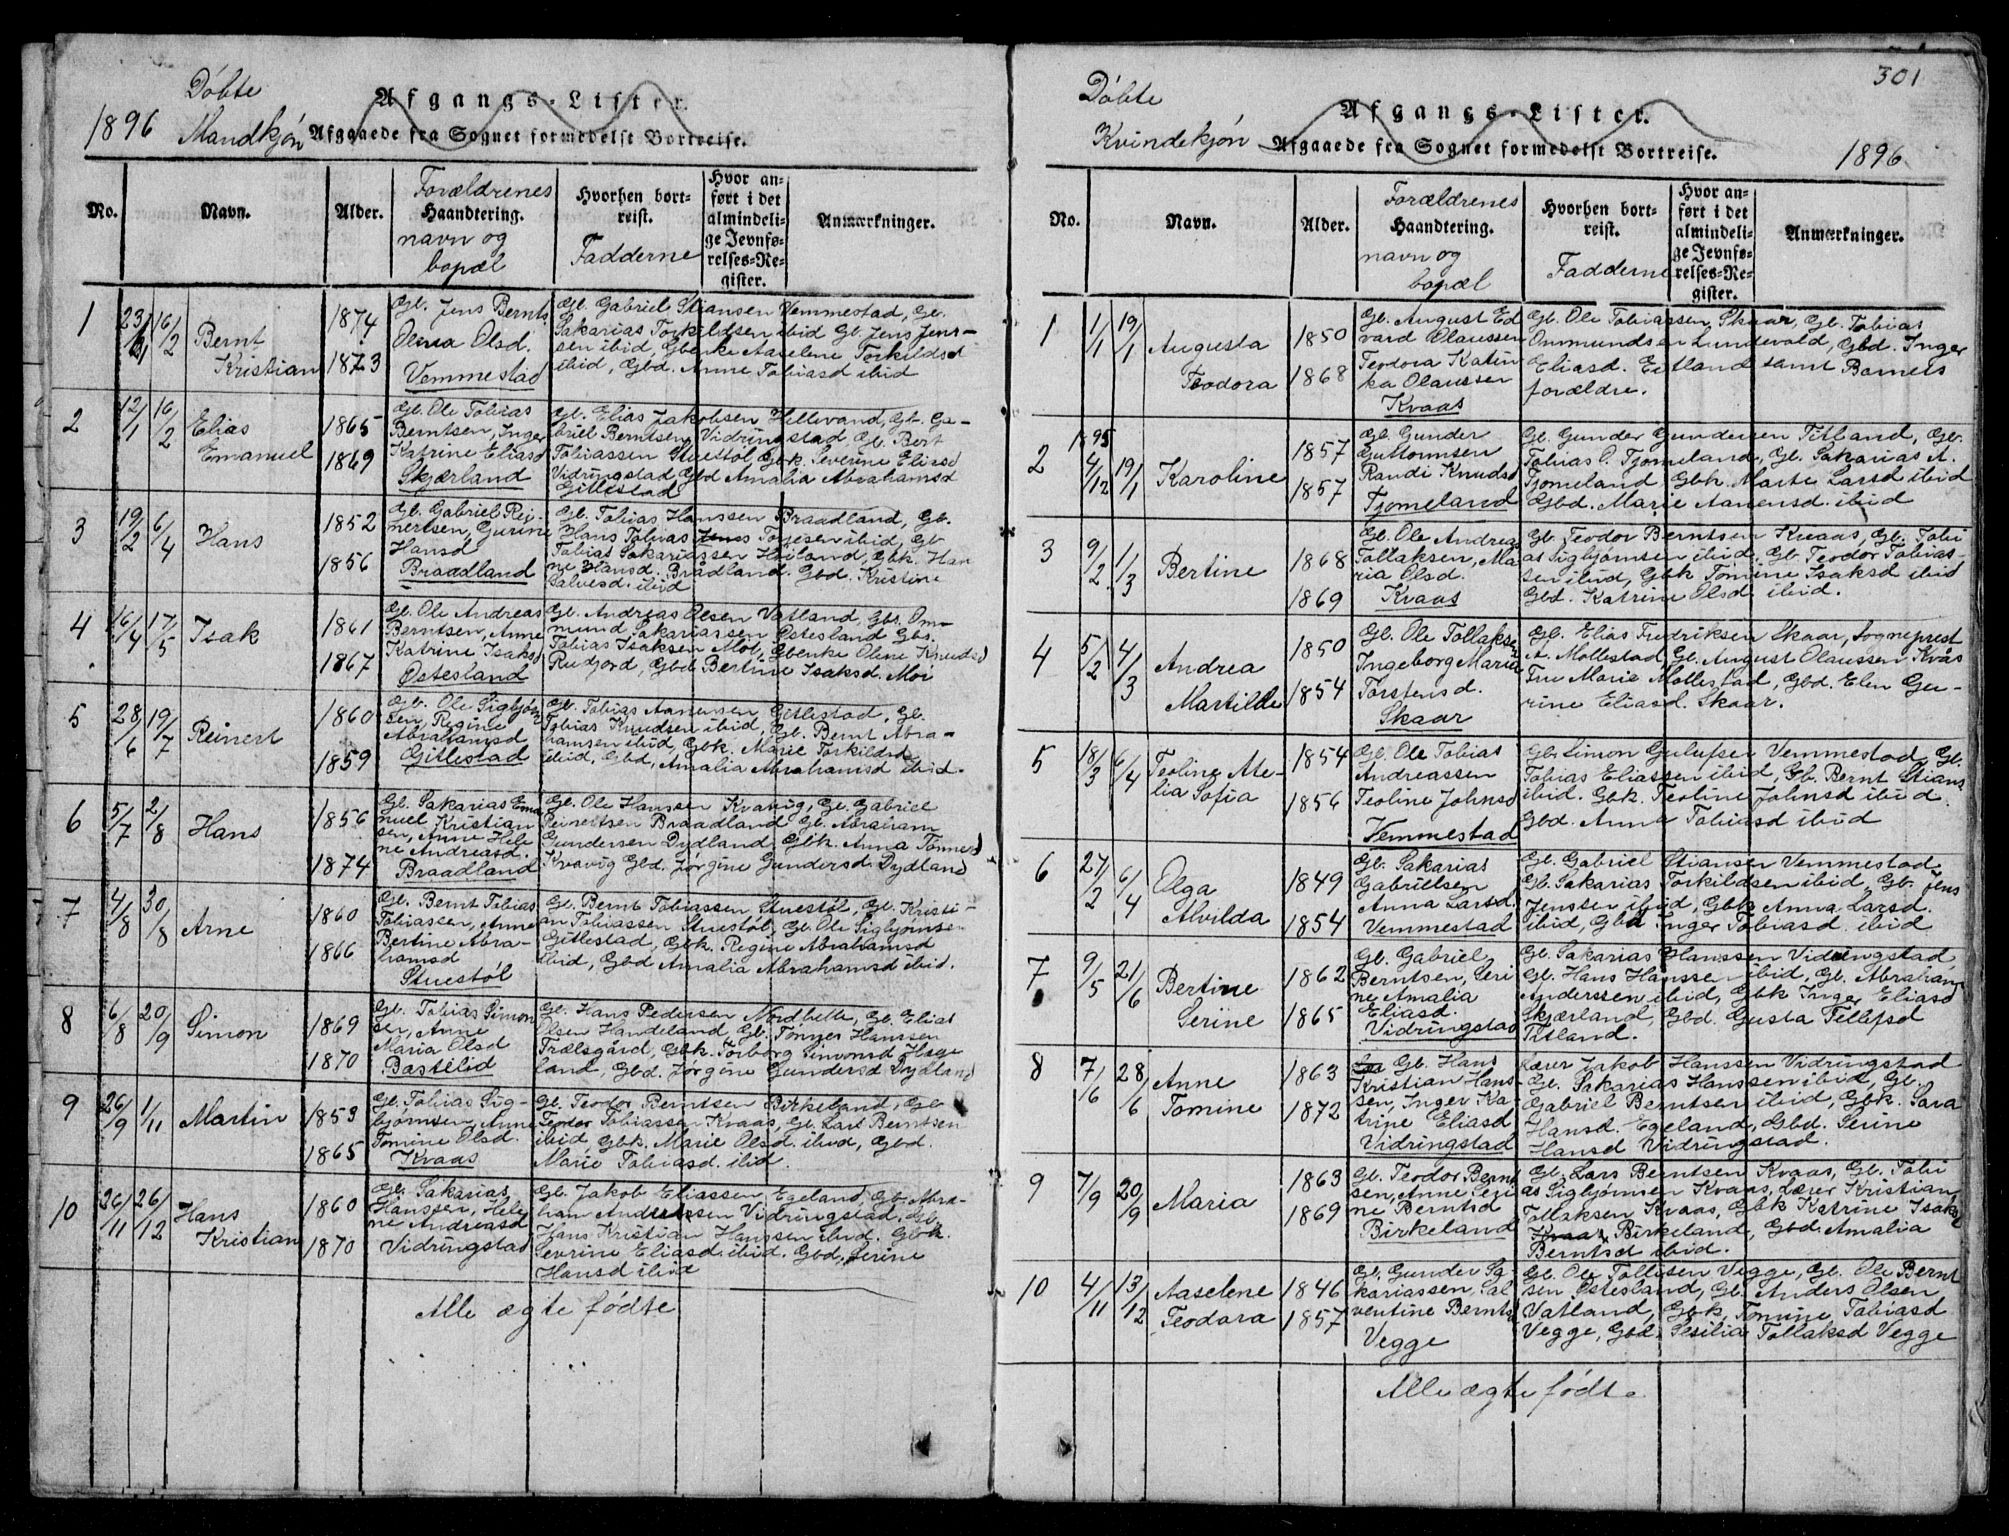 Döbte
1896 Mandkjön
Afgangs-Lister.
Afgaaede fra Sognet formedelst Bortreise.
No. Navn. Alder. Forældrenes Haandtering. navn og bopæl
Hvorhen bortreist. Fadderne
Hvor anført i det almindelige Jevnførelses-Register.
Anmærkninger.
1 16/2 Bernt Kristian 1874 1873
Gb. Jens Bernts.
Anna Olsd.
Vemmestad
Gb. Gabriel Stiansen Vemmestad, Gb.
Sakarias Torkildsen ibid Gb. Jens Jens-
sen ibid, Gbenke Aaselene Torkildsd
ibid, Gbd. Anne Tobiasd ibid
2 12/1 16/2 Elias Emanuel 1865 1869
Gb. Ole Tobias
Berntsen, Inger
Katrine Eliasd
Skjærland
Gb. Elias Jakobsen Hellevand, Gb. Ga-
briel Berntsen Vidringstad, Gb. Bert
Tobiassen Stuestøl Gbk. Severine Eliasd
Vidringstad Gbd Amalia Abrahamsd
Gitlestad
3 19/2 6/4 Hans 1852 1856
Gb. Gabriel Rei-
nertsen, Gurine
Hansd
Braadland
Gb. Tobias Hanssen Braadland, Gb.
Hans Tobias Jens Torjesen ibid, Gb
Tobias Sakariassen Heiland, Gbk. Han
ne Hansd. Brådland. Gbd. Kristine
Salvesd. ibid
4 16/4 17/5 Isak 1861 1867
Gb. Ole Andreas
Berntsen, Anne
Katrine Isaksd
Østesland
Gb. Andreas Olsen Vatland, Gbs. Om-
mund Sakariassen Østesland Gbs.
Tobias Isaksen Moi, Gbenke Oline Knudsd
Rudjord, Gbd. Bertine Isaksd. Moi
5 28/6 19/7 Reinert 1860 1859
Gb. Ole Sigbjørn
sen, Regine
Abrahamsd
Gitlestad
Gb. Tobias Aanensen Gitlestad, Gb.
Tobias Knudsen ibid, Gb. Bernt Abra-
hamsen ibid, Gbk. Marie Torkildsd
ibid, Gbd, Amalia Abrahamsd ibid.
6 5/7 2/8 Hans 1856 1874
Gb. Sakarias Ema
nuel Kristian
sen, Anne Hele
ne Andreasd.
Braadland
Gb. Ole Hanssen Kvavig, Gb. Gabriel
Reinertsen Braadland Gb. Abraham
Gundersen Dydland, Gbk. Anna Tønnesd
Kvavig Gbd. Jørgine Gundersd Dydland
7 4/8 30/8 Arne 1860 1866
Gb. Bernt Tobias
Tobiassen, Anne
Bertine Abra-
hamsd
Stuestøl
Gb. Bernt Tobiassen Stuestøl, Gb. Kristi-
an Tobiassen Stuestøl, Gb. Ole Sigbjørnsen
Gitlestad, Gbk. Regine Abrahamsd
ibid, Gbd Amalia Abrahamsd ibid.
8 6/8 20/9 Simon 1869 1870
Gb. Tobias Simon
sen, Anne
Maria Olsd
Bastelid
Gb. Hans Pedersen Nordhelle, Gb. Elias
Olsen Handeland, Gb. Tønnes Hanssen
Trælsgård, Gbk. Torborg Simonsd Hæge
land, Gbd. Jørgine Gundersd Dydland
9 26/9 1/11 Martin 1853 1865
Gb. Tobias Sig-
bjørnsen, Anne
Tomine Olsd.
Kvaas
Gb. Teodor Berntsen Birkeland, Gb
Teodor Tobiassen Kvaas, Gb. Lars Berntsen
ibid, Gbk. Marie Olsd. ibid, Gbd.
Marie Tobiasd. ibid.
10 26/11 26/12 Hans Kristian 1860 1870
Gb. Sakarias
Hanssen, Hele
ne Andreasd
Vidringstad
Gb. Jakob Eliassen Egeland, Gb. Abra-
ham Anderssen Vidringstad, Gb.
Hans Kristian Hanssen ibid. Gbk.
Severine Eliasd. ibid. Gbd, Serine
Hansd ibid
Alle ægte fødte
301
Döbte
Kvindekjön
Afgangs-Lister.
Afgaaede fra Sognet formedelst Bortreise.
1896
No. Navn. Alder. Forældrenes Haandtering. navn og bopæl
Hvorhen bortreist. Fadderne
Hvor anført i det almindelige Jevnførelses-Register.
Anmærkninger.
1 1/1 19/1 Augusta Teodora 1850 1868
Gb. August Ed
vard Olaussen
Teodora Katin
ka Olaussen
Kvaas
Gb. Ole Tobiassen, Skaar, Gb. Tobias
Ommundsen Lundevold, Gbd. Inger
Eliasd. Eitland samt Barnets
forældre.
2 1895 4/12 19/1 Karoline 1857 1857
Gb. Gunder
Guttormsen
Randi Knudsd
Tjomeland
Gb. Gunder Gundersen Titland, Gb.
Tobias O. Tjomeland, Gb. Sakarias A.
Tjomeland, Gbk. Marte Larsd ibid
Gbd. Marie Aanensd. ibid
3 9/2 1/3 Bertine 1868 1869
Gb. Ole Andreas
Tollaksen, Ma
ria Olsd.
Kvaas
Gb. Teodor Berntsen Kvaas, Gb. Tobi
as Sigbjørnsen ibid, Gb. Teodor Tobias-
sen ibid, Gbk Tomine Isaksd ibid
Gbd. Katrine Olsd ibid.
4 5/2 4/3 Andrea Martilde 1850 1854
Gb. Ole Tollaksen
Ingeborg Maria
Torstensd.
Skaar
Gb. Elias Fredriksen Skaar, Sogneprest
A. Mollestad, Gb. August Olaussen Kvås
Fru Marie Mollestad, Gbd. Elen Gu-
rine Eliasd. Skaar.
5 18/3 6/4 Teoline Me-
lia Sofia 1854 1856
Gb. Ole Tobias
Andreassen
Teoline Johnsd
Vemmestad
Gb. Simon Gulufsen Vemmestad, Gb.
Tobias Eliassen ibid, Gb. Bernt Stians
ibid. Gbk. Teoline Johnsd ibid.
Gbd. Anna Tobiasd ibid
6 27/2 6/4 Olga Alvilda 1849 1854
Gb. Sakarias
Gabrielsen
Anna Larsd.
Vemmestad
Gb. Gabriel Stiansen Vemmestad
Gb. Sakarias Torkildsen ibid, Gb. Jens
Jenssen ibid, Gbk Anna Larsd.
ibid, Gbd Inger Tobiasd. ibid
7 9/5 21/6 Bertine Serine 1862 1865
Gb. Gabriel
Berntsen, Seri
ne Amalia
Eliasd.
Vidringstad
Gb. Sakarias Hanssen Vidringstad,
Gb. Hans Hanssen ibid, Gb. Abraham
Anderssen ibid, Gbk Inger Eliasd
Skjærland, Gbd. Gusta Tellefsd
Titland.
8 7/6 28/6 Anne Tomine 1863 1872
Gb. Hans
Kristian Hans-
sen, Inger Ka-
trine Eliasd
Vidringstad
Lærer Jakob Hanssen Vidringstad
Gb. Sakarias Hanssen ibid, Gb.
Gabriel Berntsen ibid, Gbk. Sara
Hansd. Egeland, Gbd. Serine
Hansd Vidringstad.
9 7/9 20/9 Maria 1863 1869
Gb. Teodor Bernt
sen, Anne Seri
ne Berntsd
Birkeland
Gb. Lars Berntsen Kvaas, Gb. Tobi
as Sigbjørnsen Kvaas, Lærer Kristian
Tollaksen Kvaas, Gbk Katrine Isaksd
Kvaas Birkeland, Gbd. Amalia
Berntsd ibid.
10 4/11 13/12 Aaselene Teodora 1846 1857
Gb. Gunder Sa-
kariassen, Sal
ventine Berntsd
Vegge
Gb. Ole Tollisen Vegge, Gb. Ole Bernt
sen Østesland, Gb. Anders Olsen
Vatland, Gbk. Tomine Tobiasd
Vegge, Gbd. Sesilia Tollaksd Vegge
Alle ægte födte